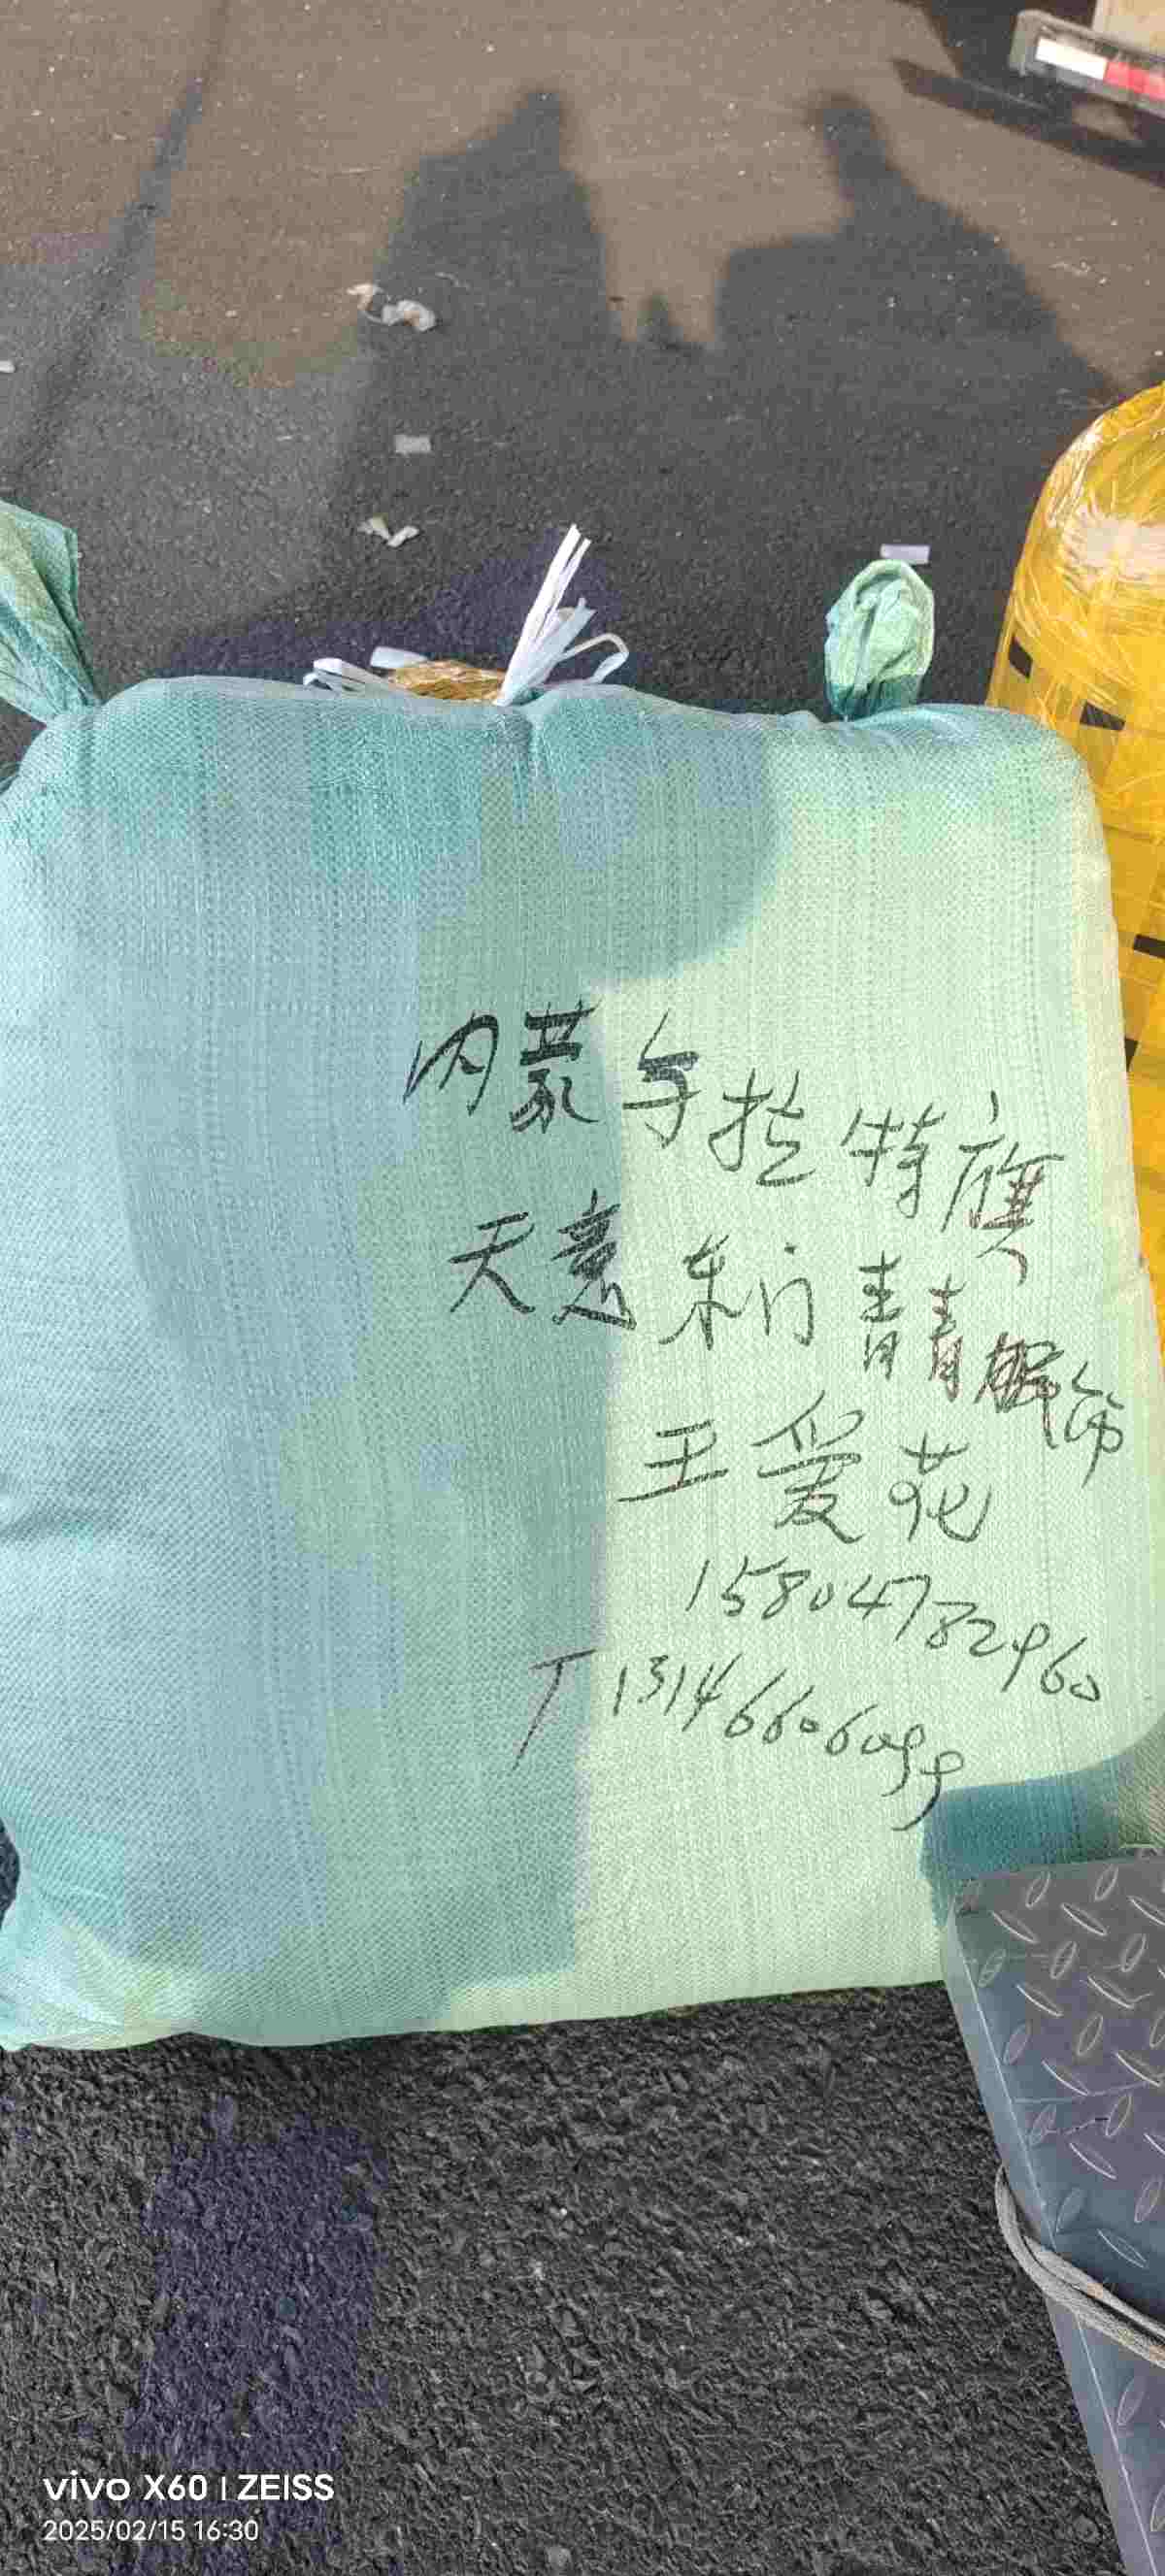 内蒙乌拉特旗
天意利门青青服饰
王爱花
15804782960
丁13146606099
vivo X60 | ZEISS
2025/02/15 16:30